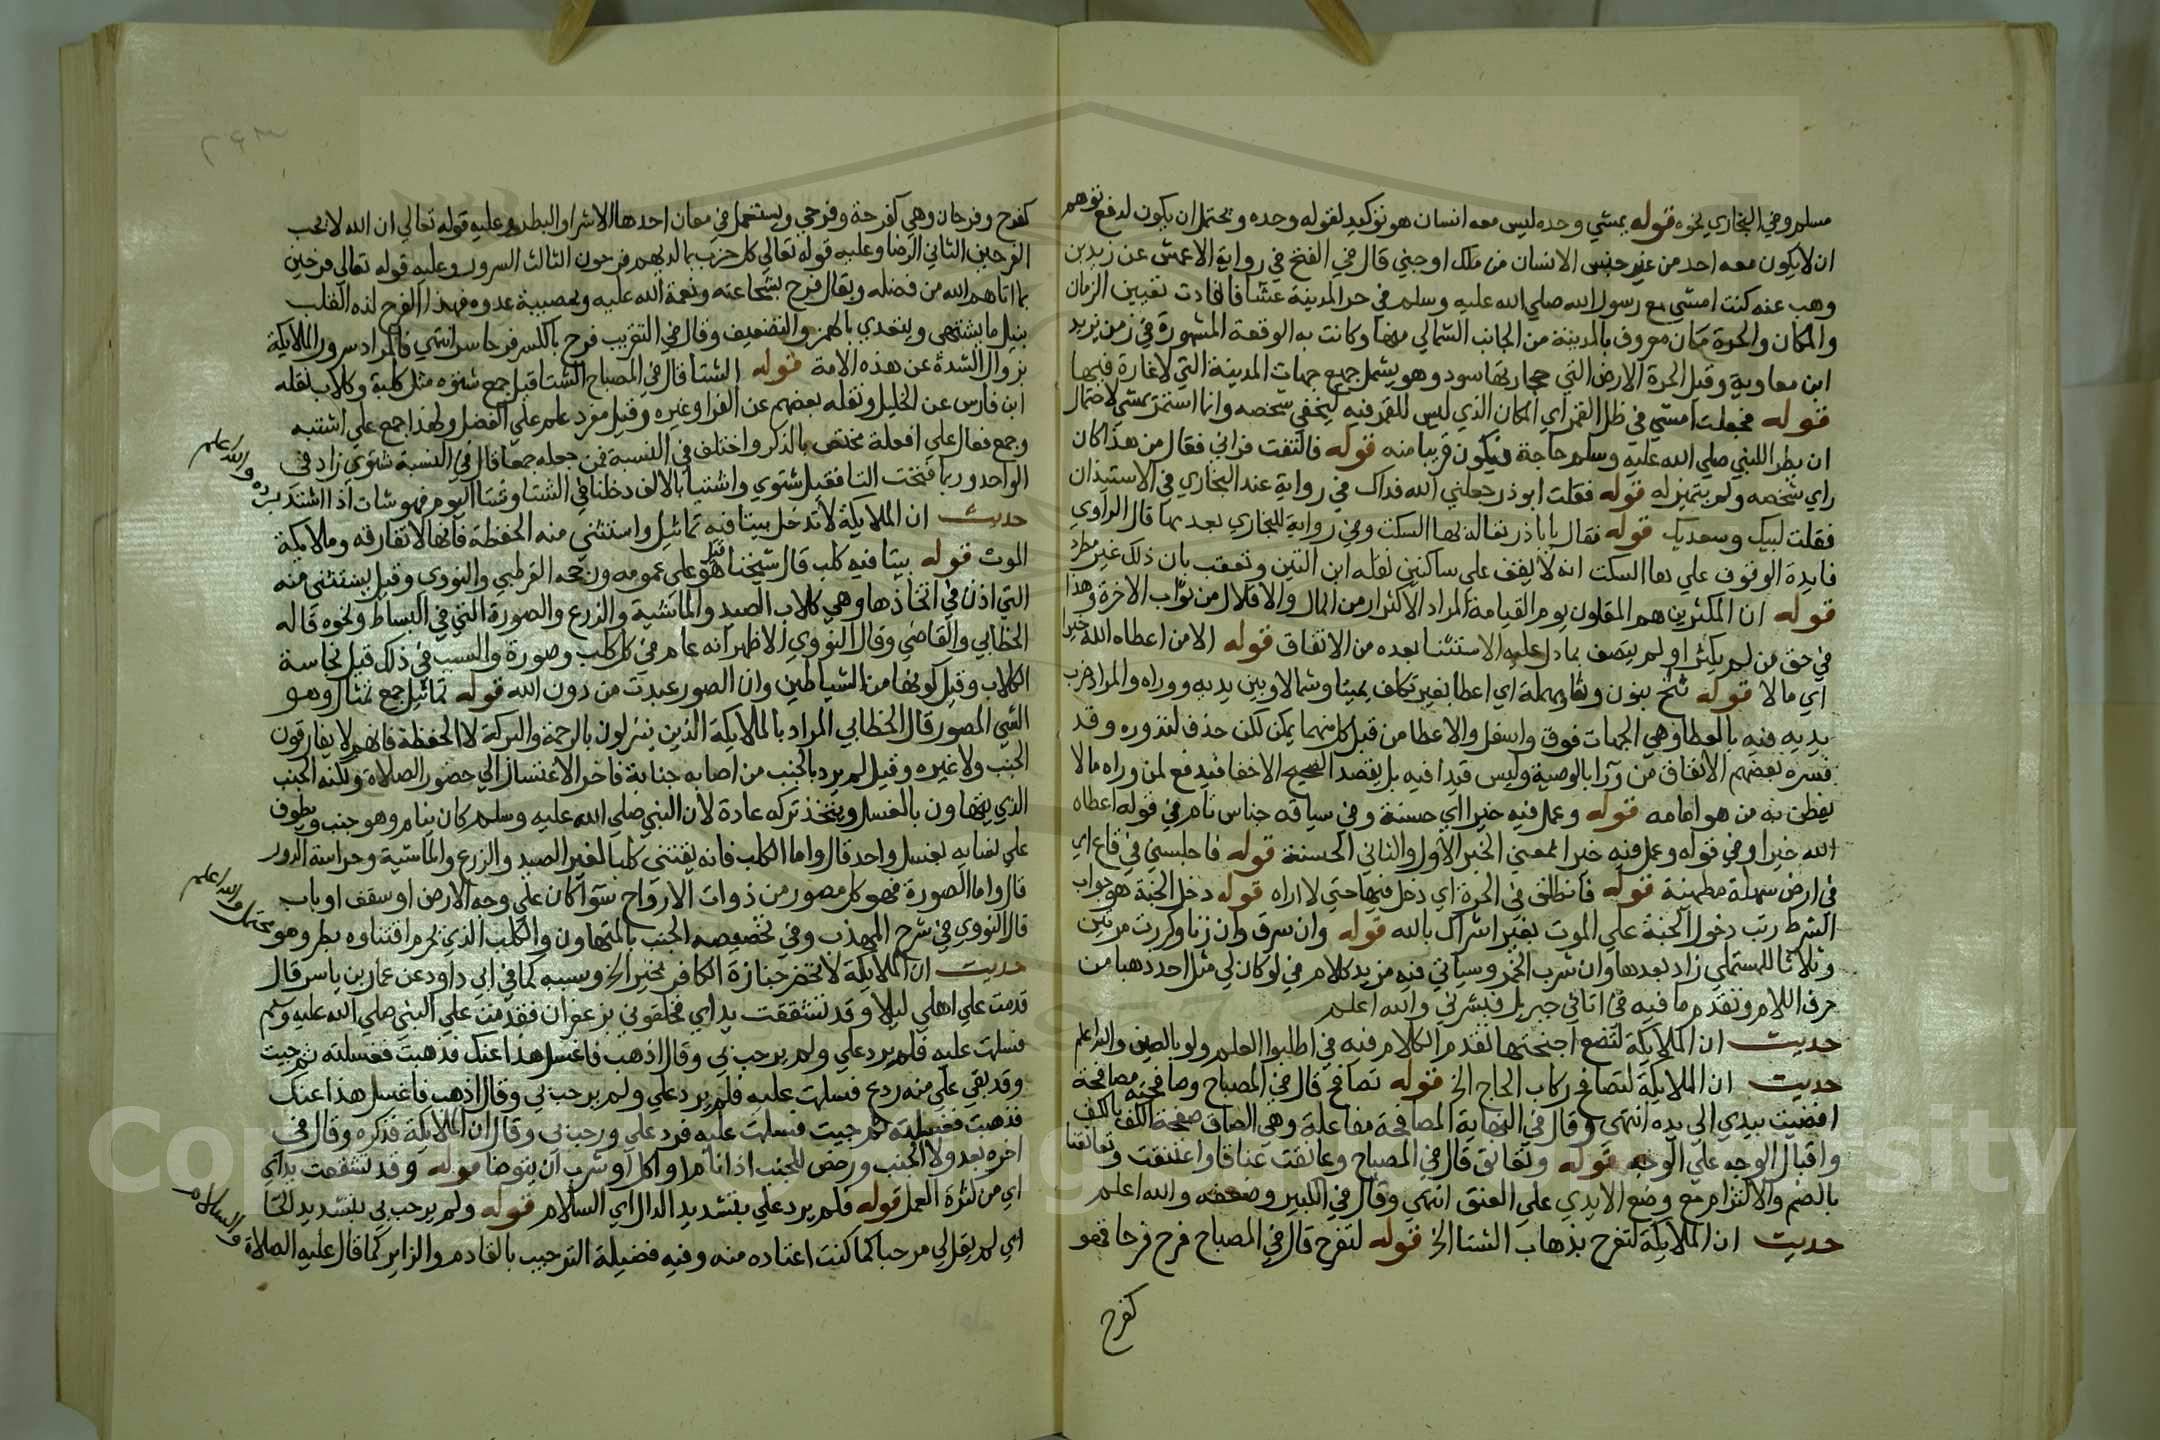 مسلم وفي البخاري نحوه قوله يمشي وحده ليس معه انسان هو توكيد لقوله وحده ويحتمل ان يكون لدفع توهم
ان لا يكون معه احد من غير جنس الانسان من ملك او جني قال في الفتح في رواية الاعمش عن زيد بن
وهب عنه كنت امشي مع رسول الله صلي الله عليه وسلم في حر المدينة عشا فافادت تعيين الزمان
والمكان والحرة مكان معروف بالمدينة من الجانب الشمالي منها وكانت به الوقعة المشهورة في زمن يزيد
ابن معاوية وقيل الحرة الارض التي حجارتها سود وهو يشمل جميع جهات المدينة التي لا عمارة فيها
قوله فجعلت امشي في ظل القمر اي المكان الذي ليس للقمر فيه ليخفي شخصه وانما استمر يمشي لاحتمال
ان يطرا للنبي صلي الله عليه وسلم حاجة فيكون قريبا منه قوله فالتفت فراني فقال من هذا كان
راي شخصه ولم يتميز له قوله فقلت ابو ذر جعلني الله فداك في رواية عند البخاري في الاستيذان
فقلت لبيك وسعديك قوله فقال يابا ذر تعاله بها السكت وفي رواية للبخاري بعد بها قال الراوي
فايدة الوقوف علي ها السكت انه لا يقف علي ساكنين نقله ابن التين وتعقب بان ذلك غير مطرد
قوله ان المكثرين هم المقلون يوم القيامة المراد الاكثار من المال والاقلال من ثواب الاخرة وهذا
في حق من لم يكثر او لم يتصف بما دل عليه الاستثنا بعده من الانفاق قوله الا من اعطاه الله خيرا
اي مالا قوله نفح بنون وفا ومهملة اي اعطا بغير تكلف يمينا وشمالا وبين يديه ووراه والمراد ضرب
يديه فيه بالعطا وهي الجهات فوق واسفل والاعطا من قبل كل منهما يمكن لكن حذف لندوره وقد
فسره بعضهم الانفاق من ورا بالوصية وليس قيدا فيه بل يقصد الصحيح الاخفا فيدفع لمن وراه مالا
يعطي به من هو امامه قوله وعمل فيه خيرا اي حسنة وفي سياقه جناس تام في قوله اعطاه
الله خيرا وفي قوله وعمل فيه خيرا فمعني الخير الاول والثاني الحسنة قوله فاجلسني في قاع اي
في ارض سهلة مطمينة قوله فانطلق في الحرة اي دخل فيها حتي لا اراه قوله دخل الجنة هو جواب
الشرط رتب دخول الجنة علي الموت بغير اشراك بالله قوله وان سرق وان زنا وكررت مرتين
وثلاثا للمستملي زاد بعدها وان شرب الخمر وسياتي فيه مزيد كلام في لو كان لي مثل احد ذهبا من
حرف اللام وتقدم ما فيه في اتاني جبريل فبشرني والله اعلم
حديث ان الملايكة لتضع اجنحتها تقدم الكلام فيه في اطلبوا العلم ولو بالصين والله اعلم
حديث ان الملايكة لتصافح ركاب الحاج الخ قوله تصافح قال في المصباح وصافحته مصافحة
افضيت بيدي الي يده انتهي وقال في النهاية المصافحة مفاعلة وهي الصاق صفحة الكف بالكف
واقبال الوجه علي الوجه قوله وتعانق قال في المصباح وعانقت عناقا واعتنقت وتعانقنا
بالضم والالتزام مع وضع الايدي علي العنق انتهي وقال في الكبير وضعفه والله اعلم
حديث ان الملايكة لتفرح بذهاب الشتا الخ قوله لتفرح قال في المصباح فرح فرحا فهو
كفرح
كفرح وفرحان وهي كفرحة وفرحي ويستعمل في معان احدها الاشر والبطر وعليه قوله تعالي ان الله لا يحب
الفرحين الثاني الرضا وعليه قوله تعالي كل حزب بما لديهم فرحون الثالث السرور وعليه قوله تعالي فرحين
بما اتاهم الله من فضله ويقال فرح بشجاعته ونعمة الله عليه وبمصيبة عدوه فهذا الفرح لذه القلب
بنيل ما يشتهي ويتعدي بالهمز والتضعيف وقال في التقريب فرح بالكسر فرحا سر انتهي فالمراد سرور الملايكة
بزوال الشدة عن هذه الامة قوله الشتا قال في المصباح الشتا قيل جمع شتوه مثل كلبة وكلاب نقله
ابن فارس عن الخليل ونقله بعضهم عن الفرا وغيره وقيل مفرد علم علي الفصل ولهذا جمع علي اشتيه
وجمع فعال علي افعلة مختص بالذكر واختلف في النسبة فمن جعله جمعا قال في النسبة شتوي زاد في
الواحد وربما فتحت التا فقيل شتوي واشتينا بالالف دخلنا في الشتا وشتا اليوم فهو شات اذا اشتد برده والله اعلم
حديث ان الملايكة لا تدخل بيتا فيه تماثيل واستثني منه الحفظة فانها لا تفارقه وملايكة
الموت قوله بيتا فيه كلب قال شيخنا قيل هو علي عمومه ورجحه القرطبي والنووي وقيل يستثني منه
التي اذن في اتخاذها وهي كلاب الصيد والماشية والزرع والصورة التي في البساط ونحوه قاله
الخطابي والقاضي وقال النووي الاظهر انه عام في كل كلب وصورة والسبب في ذلك قيل نجاسة
الكلاب وقيل كونها من الشياطين وان الصور عبدت من دون الله قوله تماثيل جمع تمثال وهو
الشي المصور قال الخطابي المراد بالملايكة الذين ينزلون بالرحمة والبركة لا الحفظة فانهم لا يفارقون
الجنب ولا غيره وقيل لم يرد بالجنب من اصابه جنابة فاخر الاغتسال الي حضور الصلاة ولكنه الجنب
الذي يتهاون بالغسل ويتخذ تركه عادة لان النبي صلي الله عليه وسلم كان ينام وهو جنب ويطوف
علي نسايه بغسل واحد قال واما الكلب فانه يقتني كلبا لغير الصيد والزرع والماشية وحراسة الدور
قال واما الصورة فهو كل مصور من ذوات الارواح سوآ كان علي وجه الارض او سقف او باب
قال النووي في شرح المهذب وفي تخصيصه الجنب بالمتهاون والكلب الذي يحرم اقتناوه نظر وهو محتمل والله اعلم
حديث ان الملايكة لا تحضر جنازة الكافر بخير الخ وسببه كما في ابي داود عن عمار بن ياسر قال
قدمت علي اهلي ليلا وقد تشققت يداي فخلقوني بزعفران فغدوت علي النبي صلي الله عليه وسلم
فسلمت عليه فلم يرد علي ولم يرحب بي وقال اذهب فاغسل هذا عنك فذهبت فغسلته ثم جيت
وقد بقي علي منه ردع فسلمت عليه فلم يرد علي ولم يرحب بي وقال اذهب فاغسل هذا عنك
فذهبت فغسلته ثم جيت فسلمت عليه فرد علي ورحب بي وقال ان الملايكة فذكره وقال في
اخره بعد ولا الجنب ورخص للجنب اذا نام او اكل او شرب ان يتوضا قوله وقد تشققت يداي
اي من كثرة العمل قوله فلم يرد علي بتشديد الدال اي السلام قوله ولم يرحب بي بتشديد الحا
اي لم يقل لي مرحبا كما كنت اعتاده منه وفيه فضيلة الترحيب بالقادم والزاير كما قال عليه الصلاة والسلام